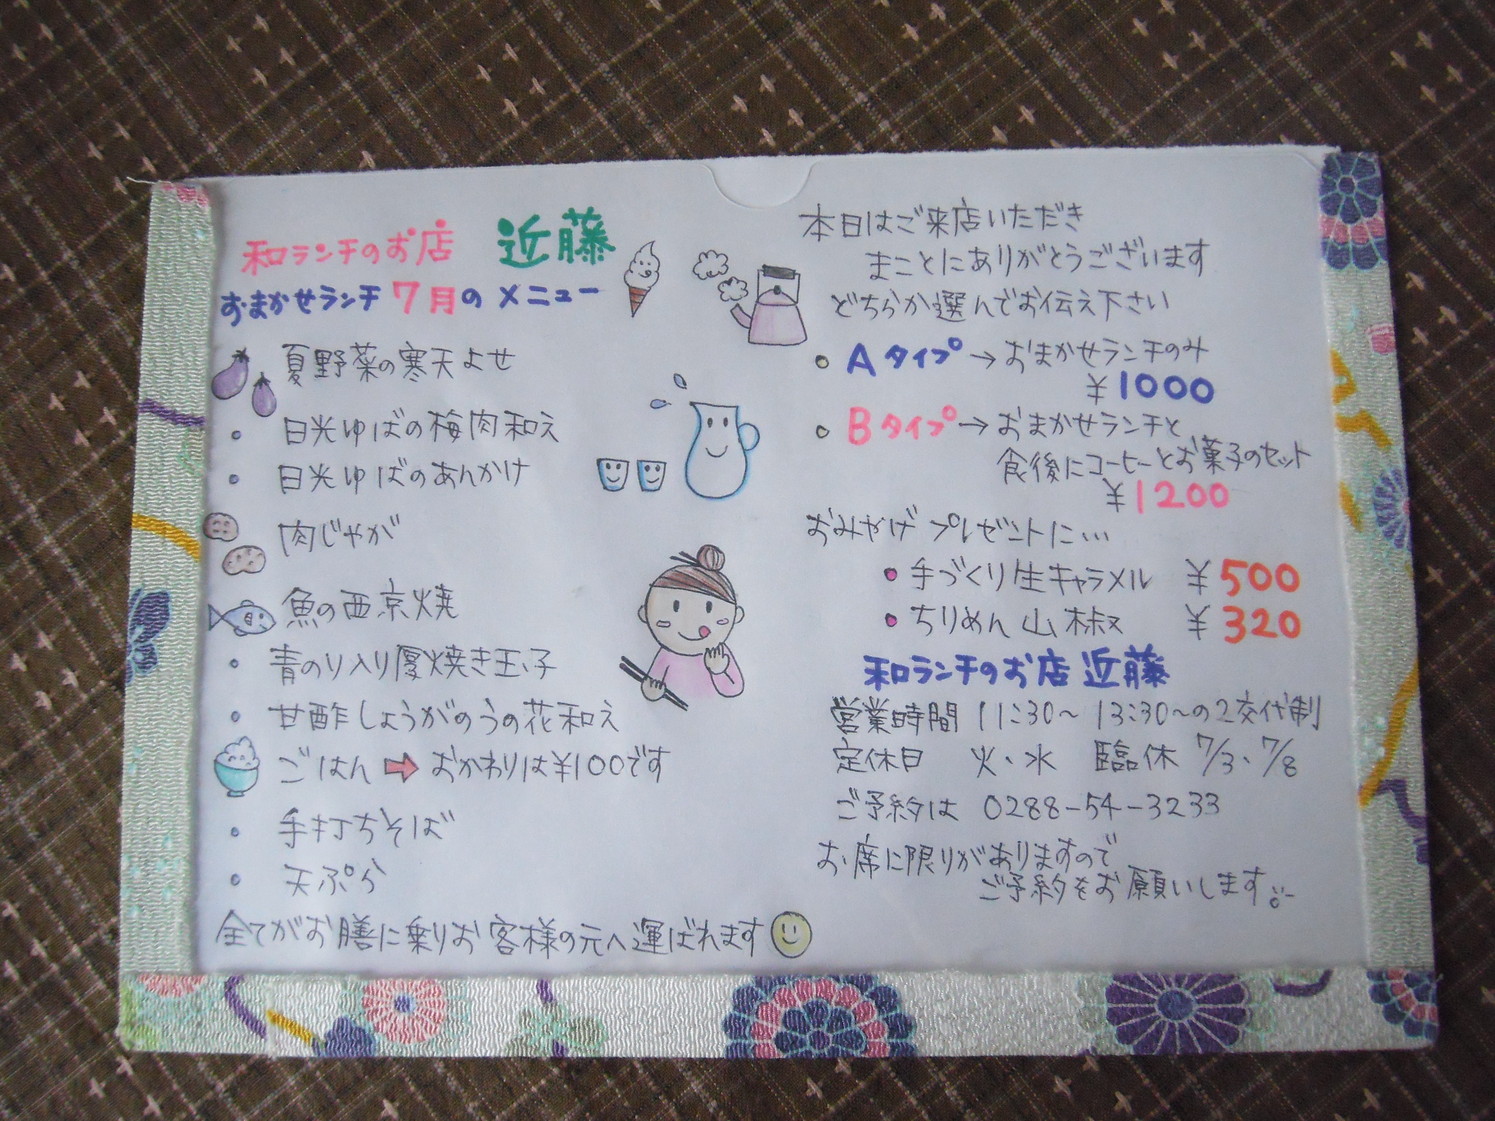 和ランチのお店 近藤
おまかせランチ 7月の メニュー
夏野菜の寒天よせ
・ 日光ゆばの梅肉和え
・ 日光ゆばのあんかけ
肉じゃが
魚の西京焼
・ 青のり入り厚焼き玉子
・ 甘酢しょうがのうの花和え
ごはん ➡ おかわりは¥100です
・ 手打ちそば
・ 天ぷら
全てがお膳に乗りお客様の元へ運ばれます
本日はご来店いただき
まことにありがとうございます
どちらか選んでお伝え下さい
・ Aタイプ→おまかせランチのみ
¥1000
・ Bタイプ→おまかせランチと
食後にコーヒーとお菓子のセット
¥1200
おみやげ プレゼントに…
・手づくり生キャラメル ¥500
・ちりめん山椒 ¥320
和ランチのお店 近藤
営業時間 11:30～ 13:30～の2交代制
定休日 火・水 臨休 7/3、7/8
ご予約は 0288-54-3233
お席に限りがありますので
ご予約をお願いします。